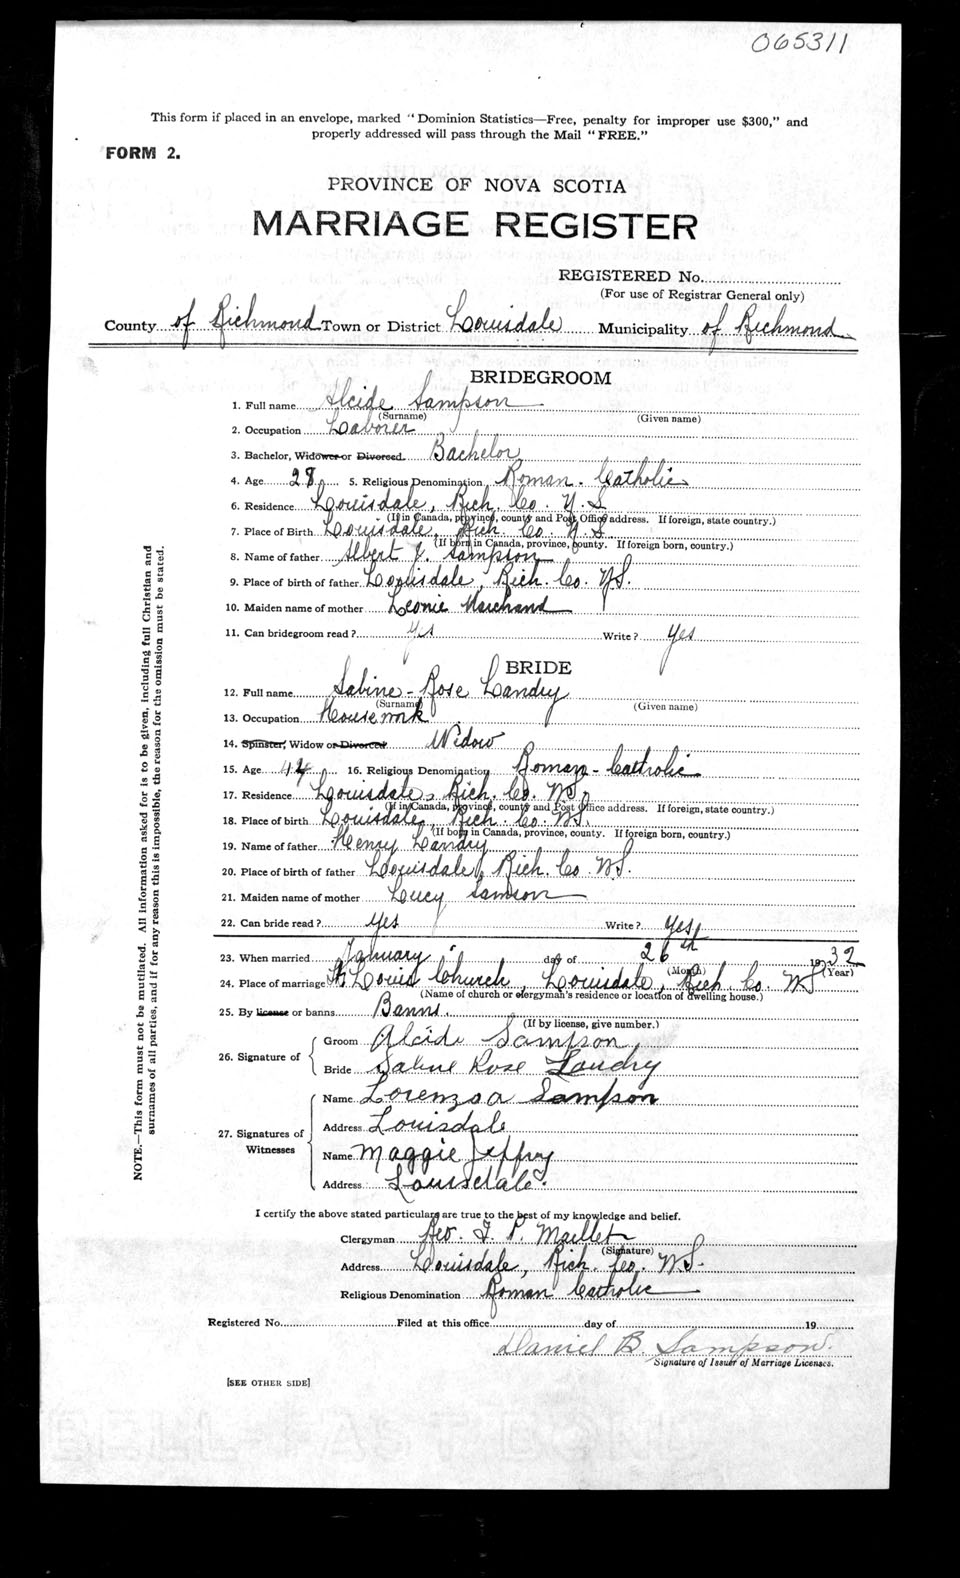 065311
This form if placed in an envelope, marked "Dominion Statistics—Free, penalty for improper use $300," and
properly addressed will pass through the Mail "FREE."
FORM 2.
PROVINCE OF NOVA SCOTIA
MARRIAGE REGISTER
REGISTERED No.
(For use of Registrar General only)
County of Richmond Town or District Louisdale Municipality of Richmond
BRIDEGROOM
1. Full name Alcide Sampson
(Surname) (Given name)
2. Occupation Laborer
3. Bachelor, Widower or Divorced Bachelor
4. Age 28 5. Religious Denomination Roman-Catholic
6. Residence Louisdale, Rich. Co. N.S
(If in Canada, province, county and Post Office address. If foreign, state country.)
7. Place of Birth Louisdale, Rich Co. N.S
(If born in Canada, province, county. If foreign born, country.)
8. Name of father Albert J. Sampson
9. Place of birth of father Louisdale, Rich. Co. N.S.
10. Maiden name of mother Leonie Marchand
11. Can bridegroom read? yes Write? yes
BRIDE
12. Full name Sabine-Rose Landry
(Surname) (Given name)
13. Occupation Housework
14. Spinster, Widow or Divorced Widow
15. Age 44 16. Religious Denomination Roman-Catholic
17. Residence Louisdale, Rich. Co. N.S.
(If in Canada, province, county and Post Office address. If foreign, state country.)
18. Place of birth Louisdale, Rich. Co. N.S.
(If born in Canada, province, county. If foreign born, country.)
19. Name of father Henry Landry
20. Place of birth of father Louisdale, Rich. Co. N.S.
21. Maiden name of mother Lucy Samson
22. Can bride read? yes Write? yes
23. When married January day of 26th 1932
(Month) (Year)
24. Place of marriage St Louis Church, Louisdale, Rich. Co. N.S
(Name of church or clergyman's residence or location of dwelling house.)
25. By license or banns Banns.
(If by license, give number.)
26. Signature of
Groom Alcide Sampson
Bride Sabine Rose Landry
27. Signatures of Witnesses
Name Lorenzoa Sampson
Address Louisdale
Name Maggie Jeffroy
Address Louisdale.
I certify the above stated particulars are true to the best of my knowledge and belief.
Clergyman Rev. J. P. Maillet
(Signature)
Address Louisdale, Rich. Co. N.S.
Religious Denomination Roman Catholic
Registered No. Filed at this office day of 19
Daniel B. Sampson.
Signature of Issuer of Marriage Licenses.
[SEE OTHER SIDE]
NOTE.—This form must not be mutilated. All information asked for is to be given, including full Christian and
surnames of all parties, and if for any reason this is impossible, the reason for the omission must be stated.